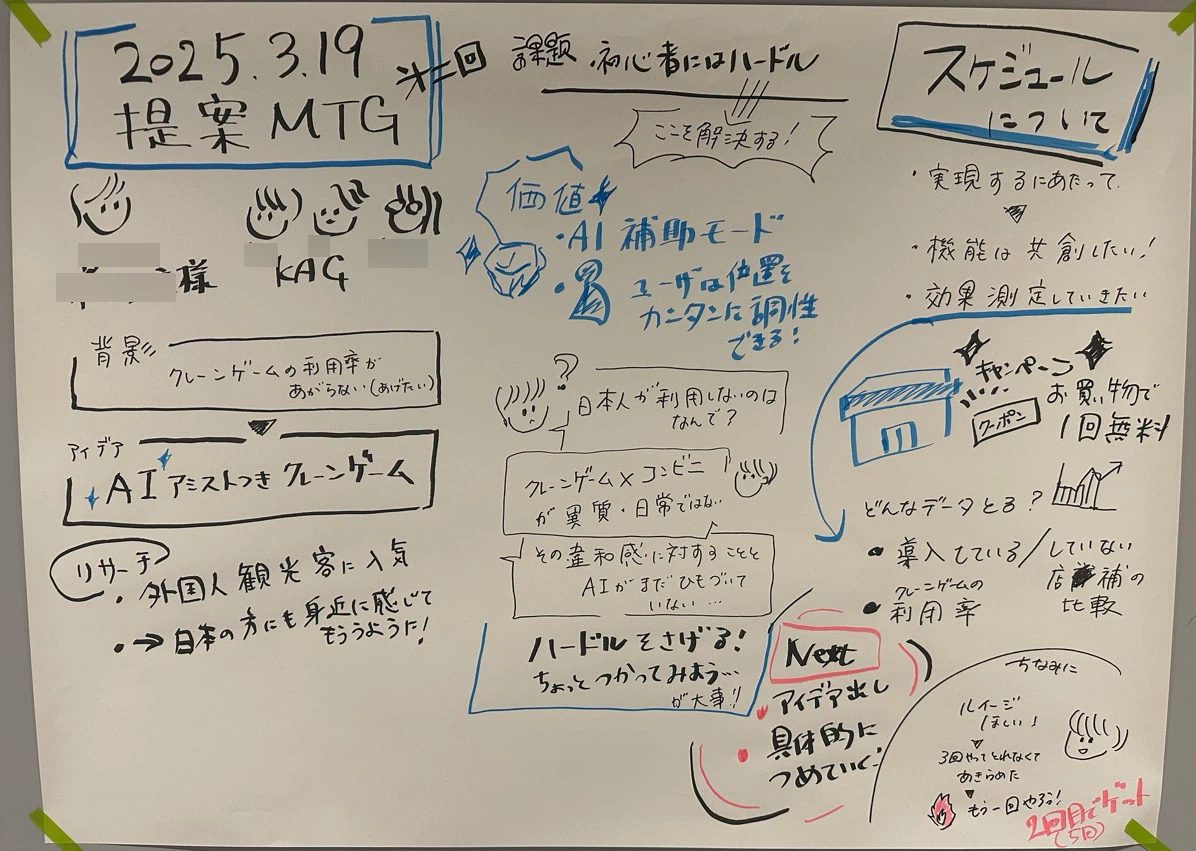 2025.3.19
提案MTG
第二回
様
KAG
背景
クレーンゲームの利用率が
あがらない(あげたい)
アイデア
AIアシストつきクレーンゲーム
リサーチ
・外国人観光客に人気
・→日本の方にも身近に感じて
もううように!
課題 ・初心者にはハードル
ここを解決する!
価値
・AI補助モード
・ユーザは位置を
カンタンに調性
できる!
?
日本人が利用しないのは
なんで?
クレーンゲーム×コンビニ
が異質・日常ではない
その違和感に対することと
AIがまだひもづいて
いない…
ハードルをさげる!
ちょっとつかってみよう…
が大事!!
Next
・アイデア出し
・具体的に
つめていく!
スケジュール
について
・実現するにあたって
・機能は共創したい!
・効果測定していきたい
キャンペーン
クーポン
お買い物で
1回無料
どんなデータとる?
・導入している/していない
店補の
比較
・クレーンゲームの
利用率
ちなみに
ルイージ
ほしい♩
3回やってとれなくて
あきらめた
もう一回やろう!
2回目でゲット
(5回)